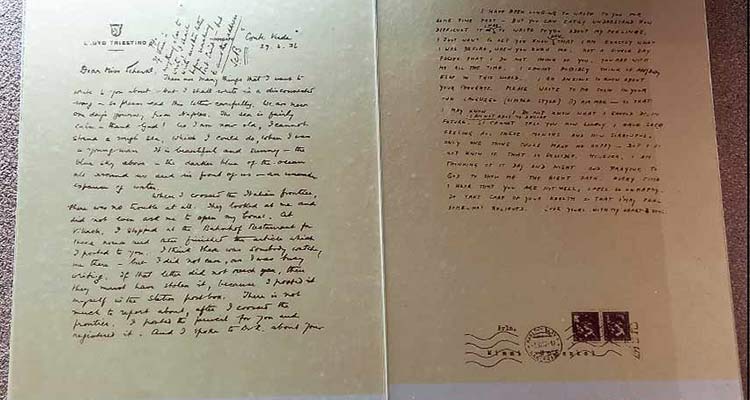 LLOYD TRIESTINO
"Conte Verde"
29.3.36
Dear Miss Schenkl,
There are many things that I want to
write to you about – but I shall write in a disconnected
way – so please read this letter carefully. We are now
one day's journey from Naples. The sea is fairly
calm – thank God! As I am now old, I cannot
stand a rough sea, which I could do when I was
a young man. It is beautiful and sunny – the
blue sky above – the darker blue of the ocean
all around us and in front of us – an
expanse of water.
When I crossed the Italian frontier,
there was no trouble at all. They looked at me and
did not even ask me to open my boxes. At
Villach, I stopped at the Bahnhof Restaurant for
and there finished the article which
I posted to you. I think there was somebody watching
me there – but I did not care, as I was busy
writing. If that letter did not reach you, then
they must have stolen it, because I posted it
myself in the Station post-box. There is not
much to report about, after I crossed the
frontier. I posted the parcel for you and
registered it. And I spoke to Dr. about your
I HAVE BEEN LONGING TO WRITE TO YOU FOR
SOME TIME PAST – BUT YOU CAN EASILY UNDERSTAND HOW
DIFFICULT IT WAS TO WRITE TO YOU ABOUT MY FEELINGS.
I JUST WANT TO LET YOU KNOW THAT I AM EXACTLY WHAT
I WAS BEFORE, WHEN YOU KNEW ME. NOT A SINGLE DAY
PASSES THAT I DO NOT THINK OF YOU. YOU ARE WITH
ME ALL THE TIME. I CANNOT POSSIBLY THINK OF ANYBODY
ELSE IN THIS WORLD. I AM ANXIOUS TO KNOW ABOUT
YOUR THOUGHTS. PLEASE WRITE TO ME SOON IN YOUR
OWN LANGUAGE (SIMPLE STYLE) BY AIR MAIL – SO THAT
I MAY KNOW. I DO NOT KNOW WHAT I SHOULD DO IN
I AM NOT ABLE TO DECIDE
FUTURE. I CANNOT TELL YOU HOW LONELY I HAVE BEEN
FEELING ALL THESE MONTHS AND HOW SORROWFUL.
ONLY ONE THING COULD MAKE ME HAPPY – BUT I DO
NOT KNOW IF THAT IS POSSIBLE. HOWEVER, I AM
THINKING OF IT DAY AND NIGHT AND PRAYING TO
GOD TO SHOW ME THE RIGHT PATH. EVERY TIME
I HEAR THAT YOU ARE NOT WELL, I FEEL SO UNHAPPY.
DO TAKE CARE OF YOUR HEALTH SO THAT I MAY FEEL
SOMEWHAT RELIEVED. EVER YOURS WITH MY HEART &